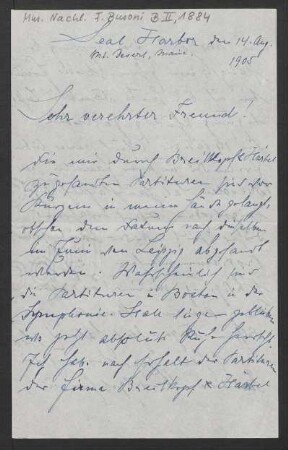 Mus. Nachl. F. Busoni B II, 1884
Seal Harbor den 14. Aug.
Mt. Desert, Maine. 1905
Sehr verehrter Freund!
Die mir durch Breitkopf & Härtel
zugesandten Partituren sind vor
Kurzem in meine Hände gelangt,
ottsen dem Datum nach dieselben
im Juni von Leipzig abgesandt
wurden. Wahrscheinlich sind
die Partituren in Boston in der
Symphonie Hall liegen geblieben
wo jetzt absolute Ruhe herrscht.
Ich habe nach Erhalt der Partituren
der Firma Breitkopf & Härtel